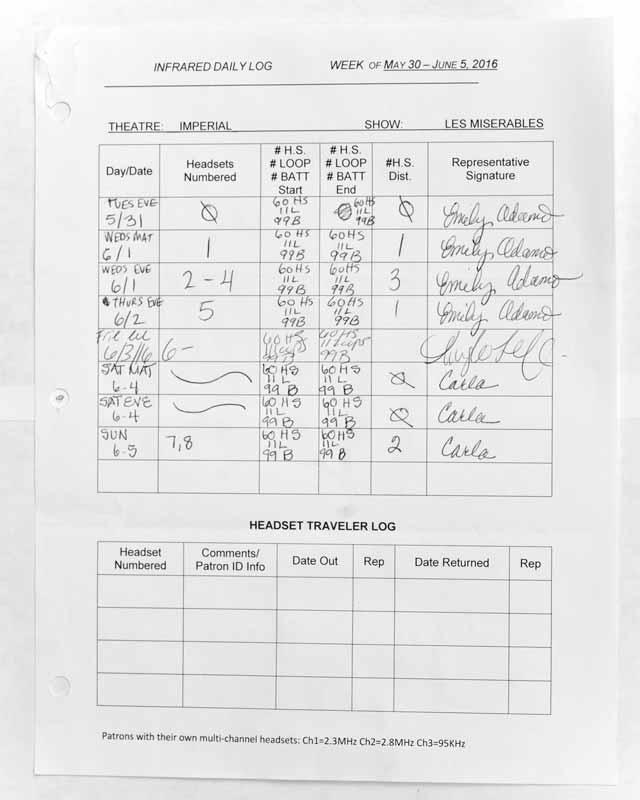 INFRARED DAILY LOG WEEK OF MAY 30 – JUNE 5, 2016
THEATRE: IMPERIAL SHOW: LES MISERABLES
Day/Date Headsets Numbered # H.S. # LOOP # BATT Start # H.S. # LOOP # BATT End #H.S. Dist. Representative Signature
TUES EVE 5/31 Ø 60 HS 11L 99B 60 HS 11L 99B Ø Emily Adamo
WEDS MAT 6/1 1 60HS 11L 99B 60HS 11L 99B 1 Emily Adamo
WEDS EVE 6/1 2-4 60HS 11L 99B 60HS 11L 99B 3 Emily Adamo
THURS EVE 6/2 5 60HS 11L 99B 60HS 11L 99B 1 Emily Adamo
6/3/16 6- 60 HS 99B 60 HS 99B
SAT MAT 6-4 60 HS 11 L 99 B 60 HS 11 L 99 B Ø Carla
SAT EVE 6-4 60 HS 11 L 99 B 60 HS 11 L 99 B Ø Carla
SUN 6-5 7,8 60 HS 11L 99 B 60 HS 11L 99 B 2 Carla
HEADSET TRAVELER LOG
Headset Numbered Comments/ Patron ID Info Date Out Rep Date Returned Rep
Patrons with their own multi-channel headsets: Ch1=2.3MHz Ch2=2.8MHz Ch3=95KHz